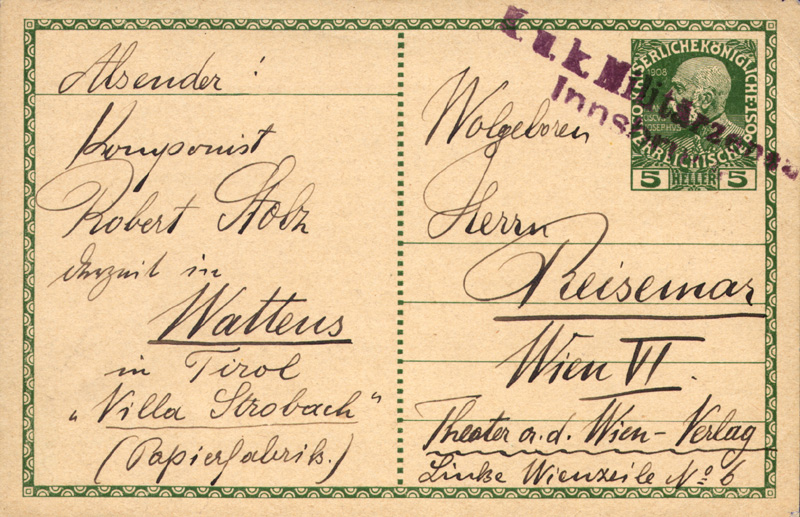 Absender :
Komponist
Robert Stolz
derzeit in
Wattens
in Tirol
„Villa Strobach“
(Papierfabrik.)
K.u.k. Militärzensur
Innsbruck
1908
5 HELLER 5
Wolgeboren
Herrn
Reisemar
Wien VI.
Theater a. d. Wien – Verlag
Linke Wienzeile No 6